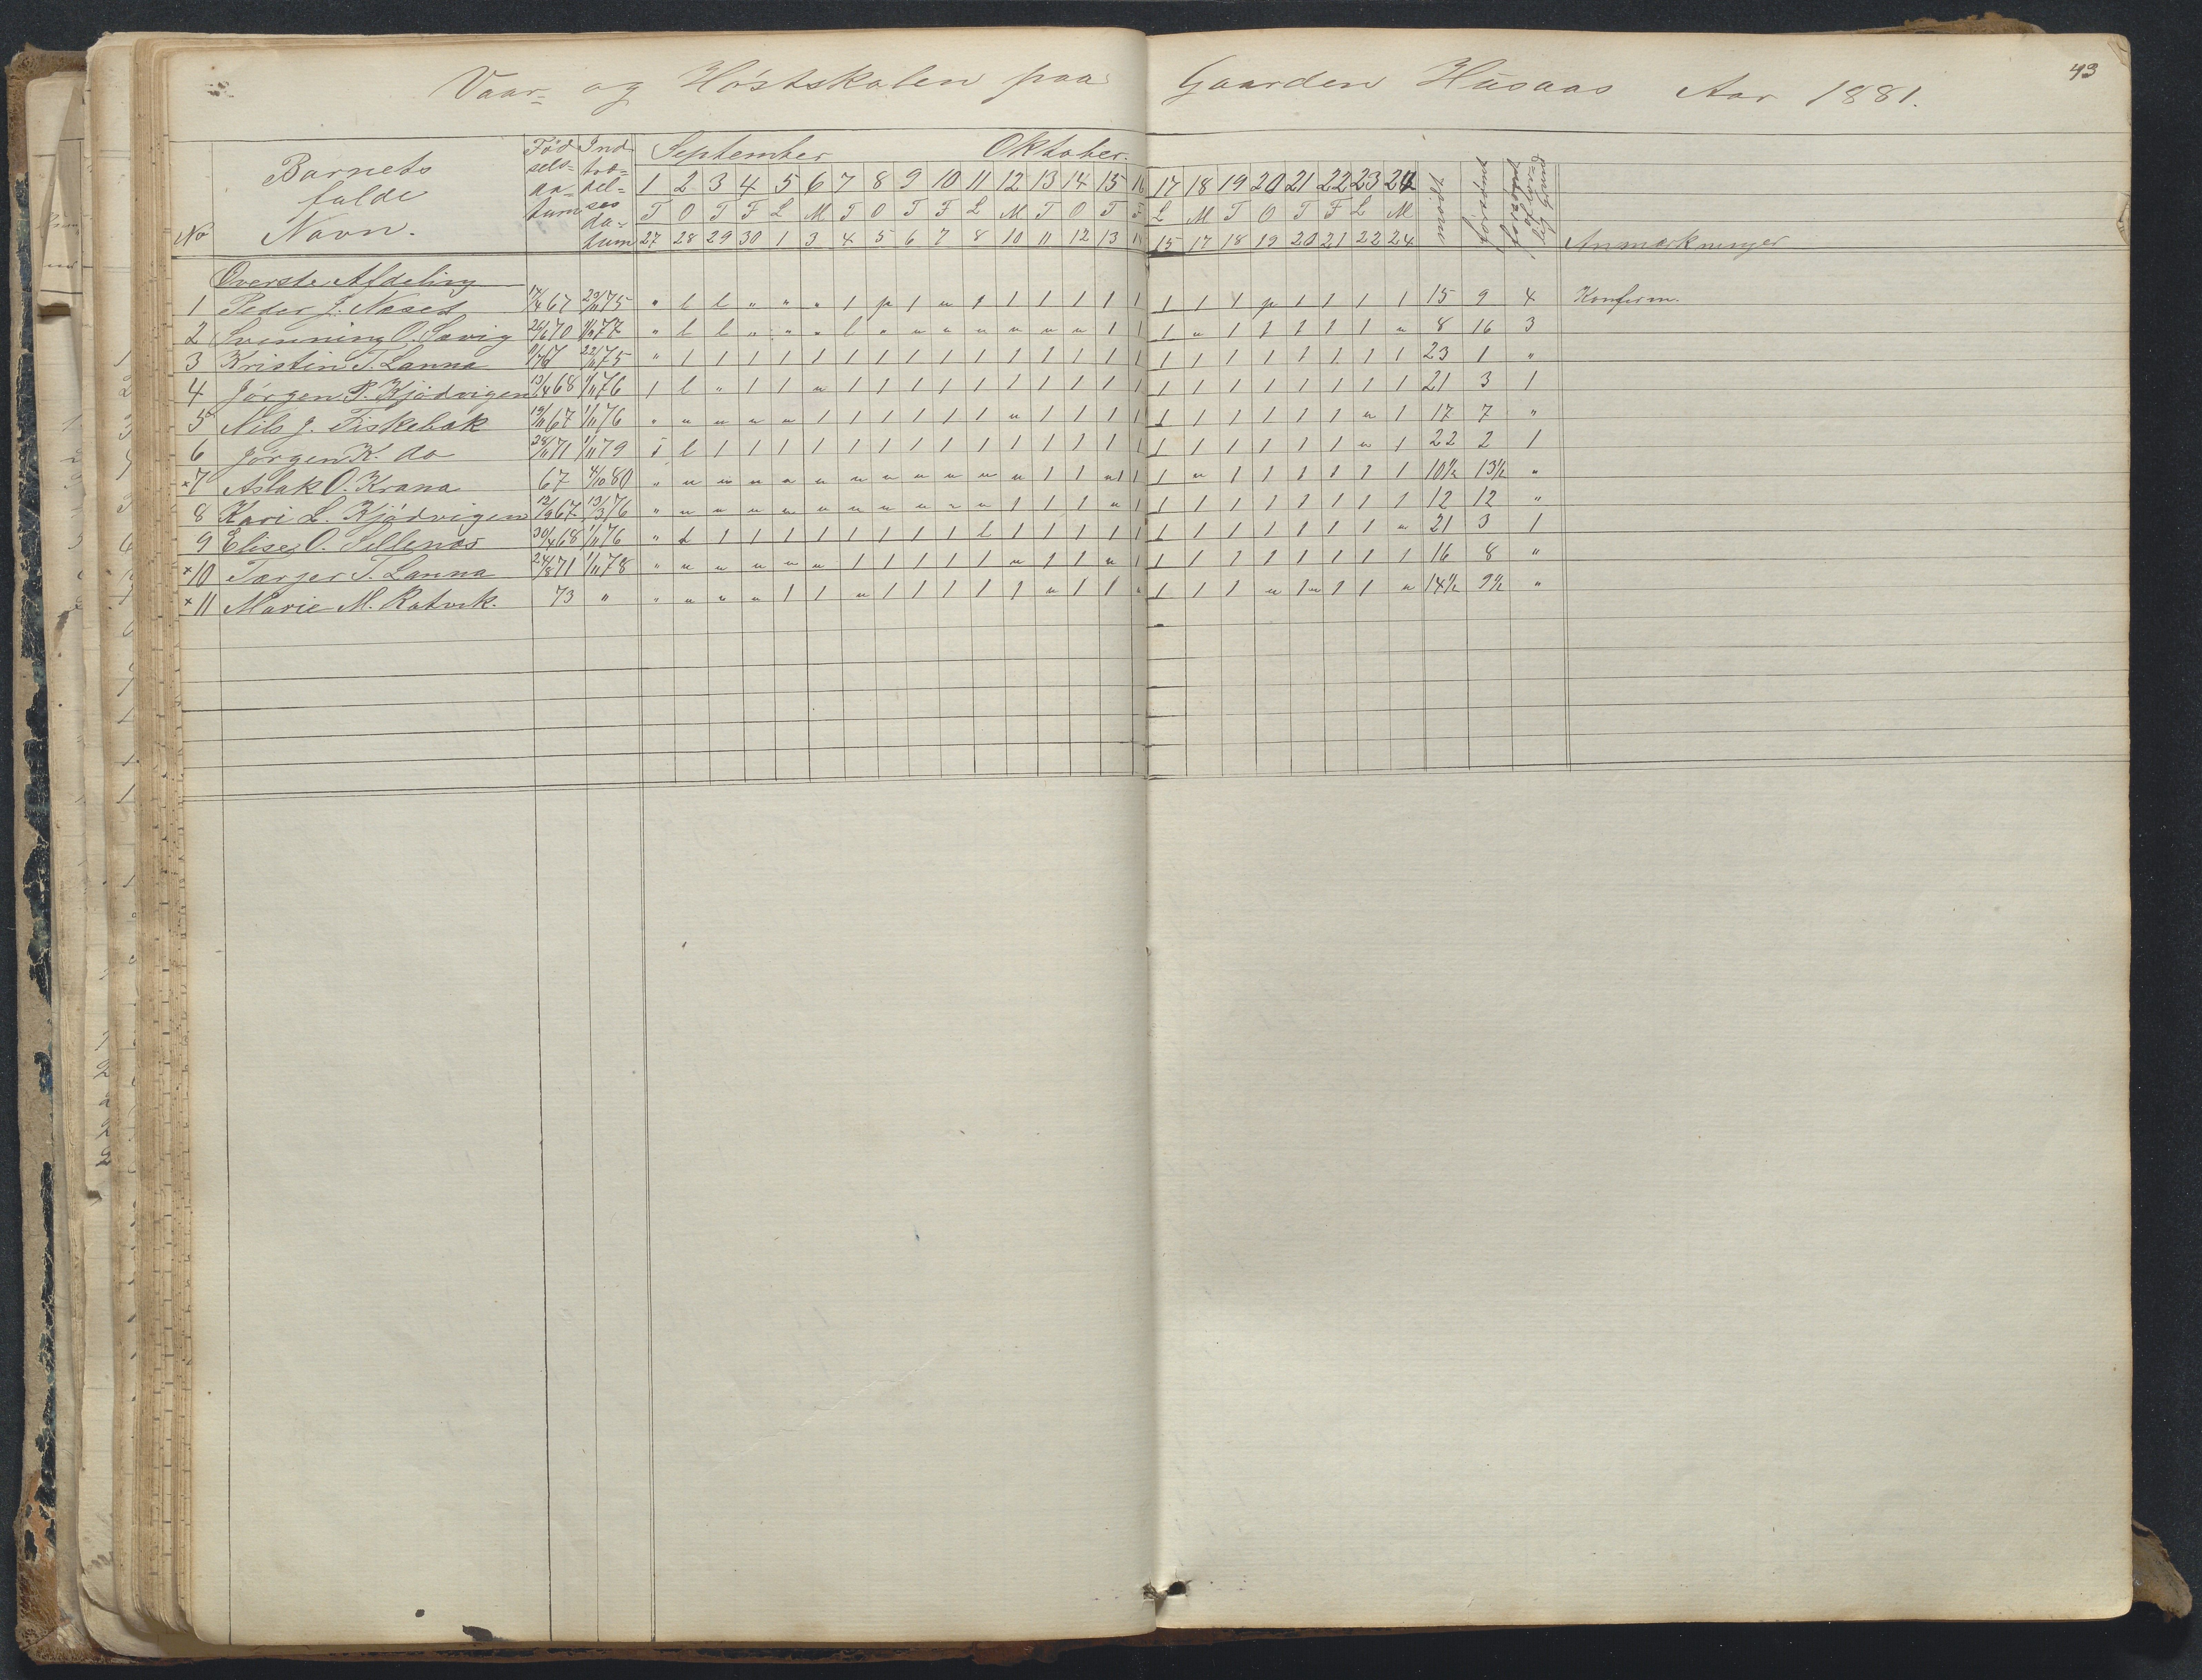 43
Vaar- og Høstskolen paa Gaarden Husaas Aar 1881.
No Barnets fulde Navn. Fødselsdatum Indtrædelsesdatum September Oktober. forsømt Anmærkninger
1 2 3 4 5 6 7 8 9 10 11 12 13 14 15 16 17 18 19 20 21 22 23 24
T O T F L M T O T F L M T O T F L M T O T F L M
27 28 29 30 1 3 4 5 6 7 8 10 11 12 13 14 15 17 18 19 20 21 22 24
Øverste Afdeling
1 Peder J. Næset 17/4 67 29/11 75 " l l " " " 1 p 1 " 1 1 1 1 1 1 1 1 1 p 1 1 1 1 15 9 4 Konferm.
2 Svenning O. Savig 26/1 70 77 " l l " " " l " " " " " " " 1 1 1 " 1 1 1 1 1 " 8 16 3
3 Kristin T. Lanna 67 22/11 75 " 1 1 1 1 1 1 1 1 1 1 1 1 1 1 1 1 1 1 1 1 1 1 1 23 1 "
4 Jørgen P. Kjødvigen 13/4 68 1/11 76 1 l " 1 1 " 1 1 1 1 1 1 1 1 1 1 1 1 1 1 1 1 1 1 21 3 1
5 Nils J. Fiskebæk 19/11 67 1/11 76 " " " " " 1 1 1 1 1 1 " 1 1 1 1 1 1 1 1 1 1 " 1 17 7 "
6 Jørgen K. do 28/11 71 1/11 79 s l 1 1 1 1 1 1 1 1 1 1 1 1 1 1 1 1 1 1 1 1 " 1 22 2 1
×7 Aslak O. Krana 67 4/10 80 " " " " " " " " " " " " 1 1 "1 1 1 " 1 1 1 1 1 1 10½ 13½ "
8 Kari L. Kjødvigen 12/9 67 13/3 76 " " " " " " " " " " " 1 1 1 " 1 1 1 1 1 1 1 1 1 12 12 "
9 Elise O. Sellenæs 30/4 68 1/11 76 " l 1 1 1 1 1 1 1 1 l 1 1 1 1 1 1 1 1 1 1 1 1 " 21 3 1
×10 Tærjer T. Lanna 24/8 71 1/11 78 " " " " " " 1 1 1 1 1 " 1 1 " 1 1 1 1 1 1 1 1 1 16 8 "
×11 Marie M. Ratvik. 73 " " " " " 1 1 " 1 1 1 1 1 " 1 1 " 1 1 1 " 1" 1 1 " 14½ 9½ "